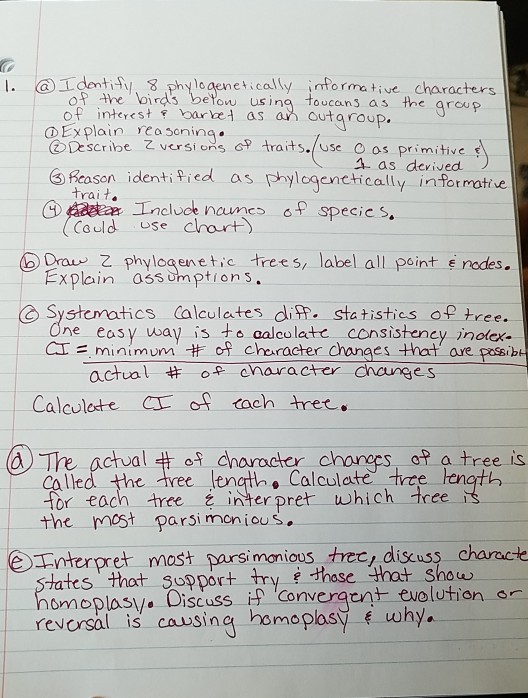 1. ⓐ Identify 8 phylogenetically informative characters
of the birds below using toucans as the group
of interest & barbet as an outgroup.
① Explain reasoning.
② Describe 2 versions of traits. (use 0 as primitive &
1 as derived)
③ Reason identified as phylogenetically informative
trait.
④ Include names of species.
(Could use chart)
ⓑ Draw 2 phylogenetic trees, label all point & nodes.
Explain assumptions.
ⓒ Systematics calculates diff. statistics of tree.
One easy way is to calculate consistency index.
CI = minimum # of character changes that are possibl
actual # of character changes
Calculate CI of each tree.
ⓓ The actual # of character changes of a tree is
called the tree length. Calculate tree length
for each tree & interpret which tree is
the most parsimonious.
ⓔ Interpret most parsimonious tree, discuss characte
states that support try & those that show
homoplasy. Discuss if convergent evolution or
reversal is causing homoplasy & why.